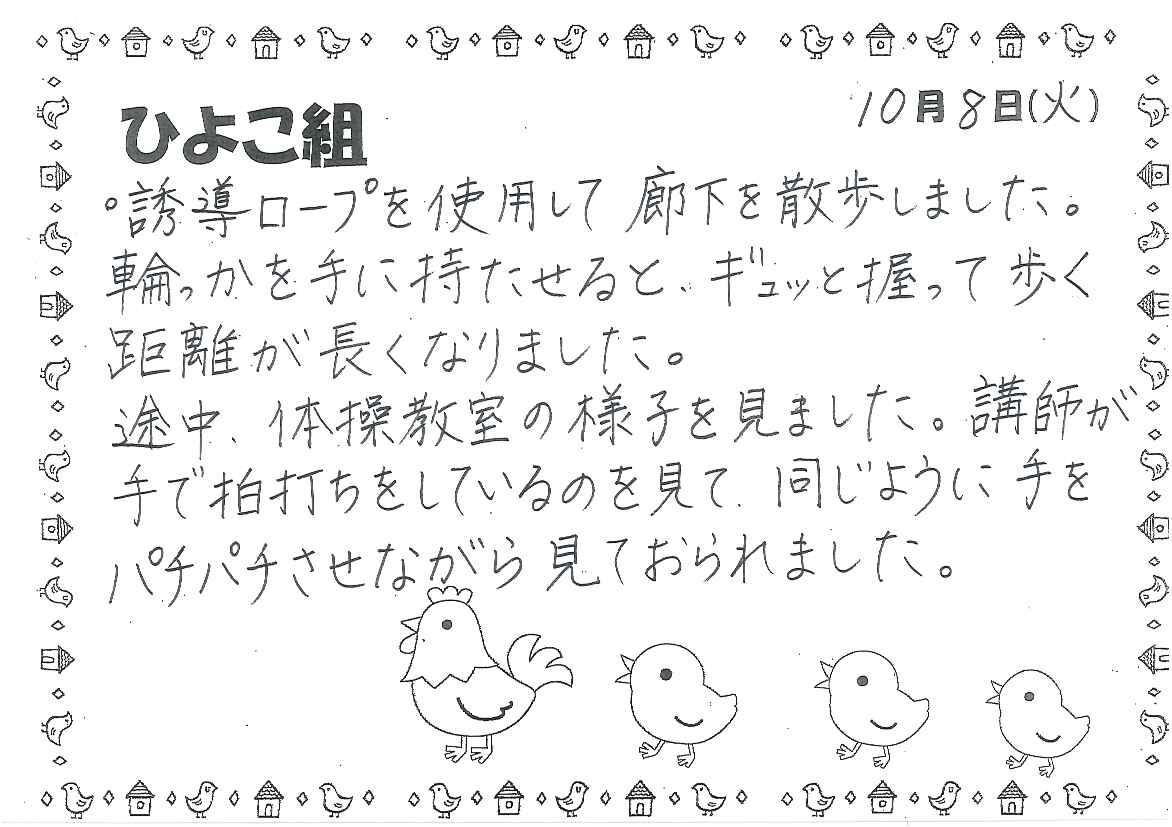 10月8日(火)
ひよこ組
°誘導ロープを使用して廊下を散歩しました。
輪っかを手に持たせると、ギュッと握って歩く
距離が長くなりました。
途中、体操教室の様子を見ました。講師が
手で拍打ちをしているのを見て、同じように手を
パチパチさせながら見ておられました。